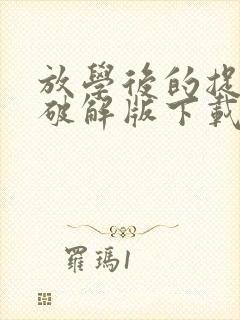 放學後的捉
破解版下載
羅瑪1